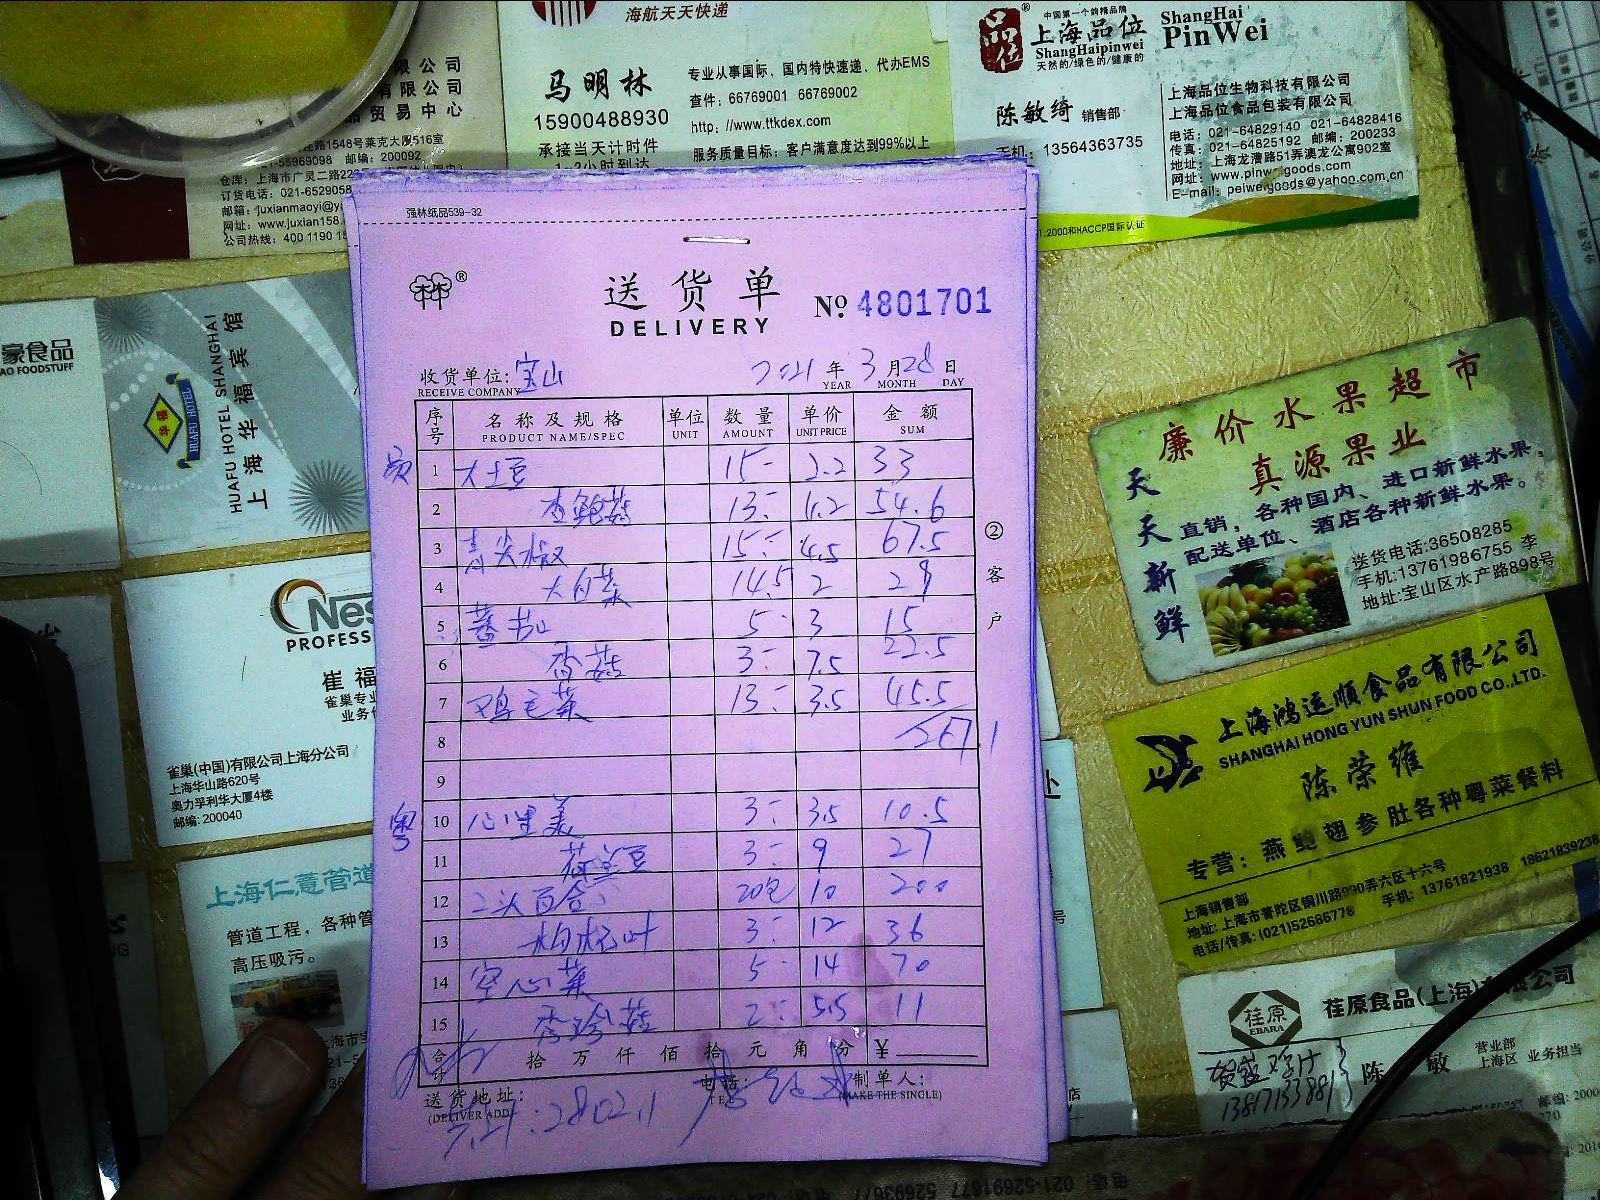 海航天天快递
马明林
15900488930
承接当天计时件
专业从事国际、国内特快速递、代办EMS
查件: 66769001 66769002
http: //www.ttkdex.com
服务质量目标: 客户满意度达到99%以上
中国第一个鹌精品牌
上海品位
ShangHaipinwei
天然的/绿色的/健康的
ShangHai
PinWei
陈敏绮 销售部
手机: 13564363735
上海品位生物科技有限公司
上海品位食品包装有限公司
电话: 021-64829140 021-64828416
传真: 021-64825192 邮编: 200233
地址: 上海龙漕路51弄澳龙公寓902室
网址: www.pinweigoods.com
E-mail: peiweigoods@yahoo.com.cn
:2000和HACCP国际认证
限公司
有限公司
品贸易中心
路1548号莱克大厦516室
-55969098 邮编: 200092
仓库: 上海市广灵二路22
订货电话: 021-6529058
邮箱: juxianmaoyi@y
网址: www.juxian158.
公司热线: 400 1190 1
豪食品
AO FOODSTUFF
华福
HUAFU HOTEL
HUAFU HOTEL SHANGHAI
上海华福宾馆
Nes
PROFESS
崔福
雀巢专业
业务
雀巢(中国)有限公司上海分公司
上海华山路620号
奥力孚利华大厦4楼
邮编: 200040
上海仁薏管道
管道工程, 各种管
高压吸污。
强林纸品539-32
林®
送货单
DELIVERY
№ 4801701
收货单位: 宝山
RECEIVE COMPANY
2021 年 3 月 28 日
YEAR MONTH DAY
序号 名称及规格 单位 数量 单价 金额
PRODUCT NAME/SPEC UNIT AMOUNT UNIT PRICE SUM
1 大土豆 15- 2.2 33
2 杏鲍菇 13- 4.2 54.6
3 青尖椒 15- 4.5 67.5
4 大白菜 14.5 2 29
5 蕃茄 5- 3 15
6 香菇 3- 7.5 22.5
7 鸡毛菜 13- 3.5 45.5
8 267.1
9
粤
10 心里美 3- 3.5 10.5
11 荷兰豆 3- 9 27
12 二头百合 20包 10 200
13 3- 12 36
14 空心菜 5- 14 70
15 杏珍菇 2- 5.5 11
合计 拾万仟佰拾元角分 ¥
②客户
送货地址:
(DELIVER ADD)
电话:
TEL
制单人:
(MAKE THE SINGLE)
共计: 2802.1
廉价水果超市
真源果业
天天新鲜
直销, 各种国内、进口新鲜水果,
配送单位、酒店各种新鲜水果。
送货电话:36508285
手机:13761986755 李
地址:宝山区水产路898号
上海鸿运顺食品有限公司
SHANGHAI HONG YUN SHUN FOOD CO.,LTD.
陈荣维
专营: 燕鲍翅参肚各种粤菜餐料
上海销售部
地址: 上海市普陀区铜川路990弄六区十六号
电话/传真: (021)52686778 手机: 13761821938 18621839238
荏原
EBARA
荏原食品(上海)有限公司
陈敏
营业部
上海区 业务担当